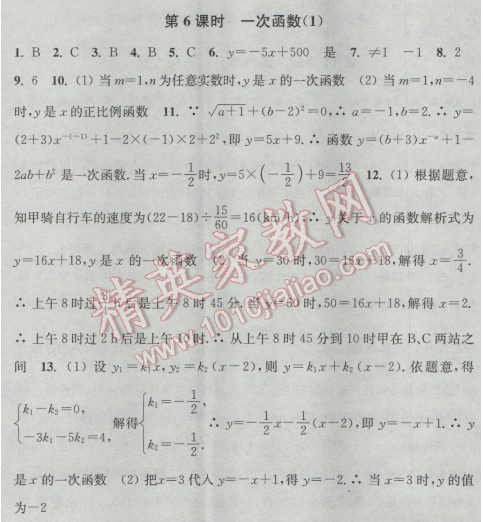 第6课时　一次函数(1)
1. B　2. C　3. B　4. B　5. C　6. y=-5x+500　是　7. ≠1　-1　8. 2
9. 6　10. (1) 当 m=1,n 为任意实数时,y 是 x 的一次函数　(2) 当 m=1,n=-4
时,y 是 x 的正比例函数　11. ∵ √(a+1)+(b-2)²=0,∴ a=-1,b=2. ∴ y=
(2+3)x^(-(-1))+1-2×(-1)×2+2²,即 y=5x+9. ∴ 函数 y=(b+3)x^(-a)+1-
2ab+b² 是一次函数. 当 x=-1/2 时,y=5×(-1/2)+9=13/2　12. (1) 根据题意,
知甲骑自行车的速度为(22-18)÷15/60=16(km/h). ∴ y 关于 x 的函数解析式为
y=16x+18,y 是 x 的一次函数　(2) 当 y=30 时,30=16x+18,解得 x=3/4.
∴ 上午 8 时过 h 后是上午 8 时 45 分. 当 y=50 时,50=16x+18,解得 x=2.
∴ 上午 8 时过 2 h 后是上午 10 时. ∴ 从上午 8 时 45 分到 10 时甲在 B、C 两站之
间　13. (1) 设 y₁=k₁x,y₂=k₂(x-2),则 y=k₁x+k₂(x-2). 依题意,得
{k₁-k₂=0, -3k₁-5k₂=4, 解得 {k₁=-1/2, k₂=-1/2. ∴ y=-1/2x-1/2(x-2),即 y=-x+1. ∴ y
是 x 的一次函数　(2) 把 x=3 代入 y=-x+1,得 y=-2. ∴ 当 x=3 时,y 的值
为-2
精英家教网
www.1010jiajiao.com